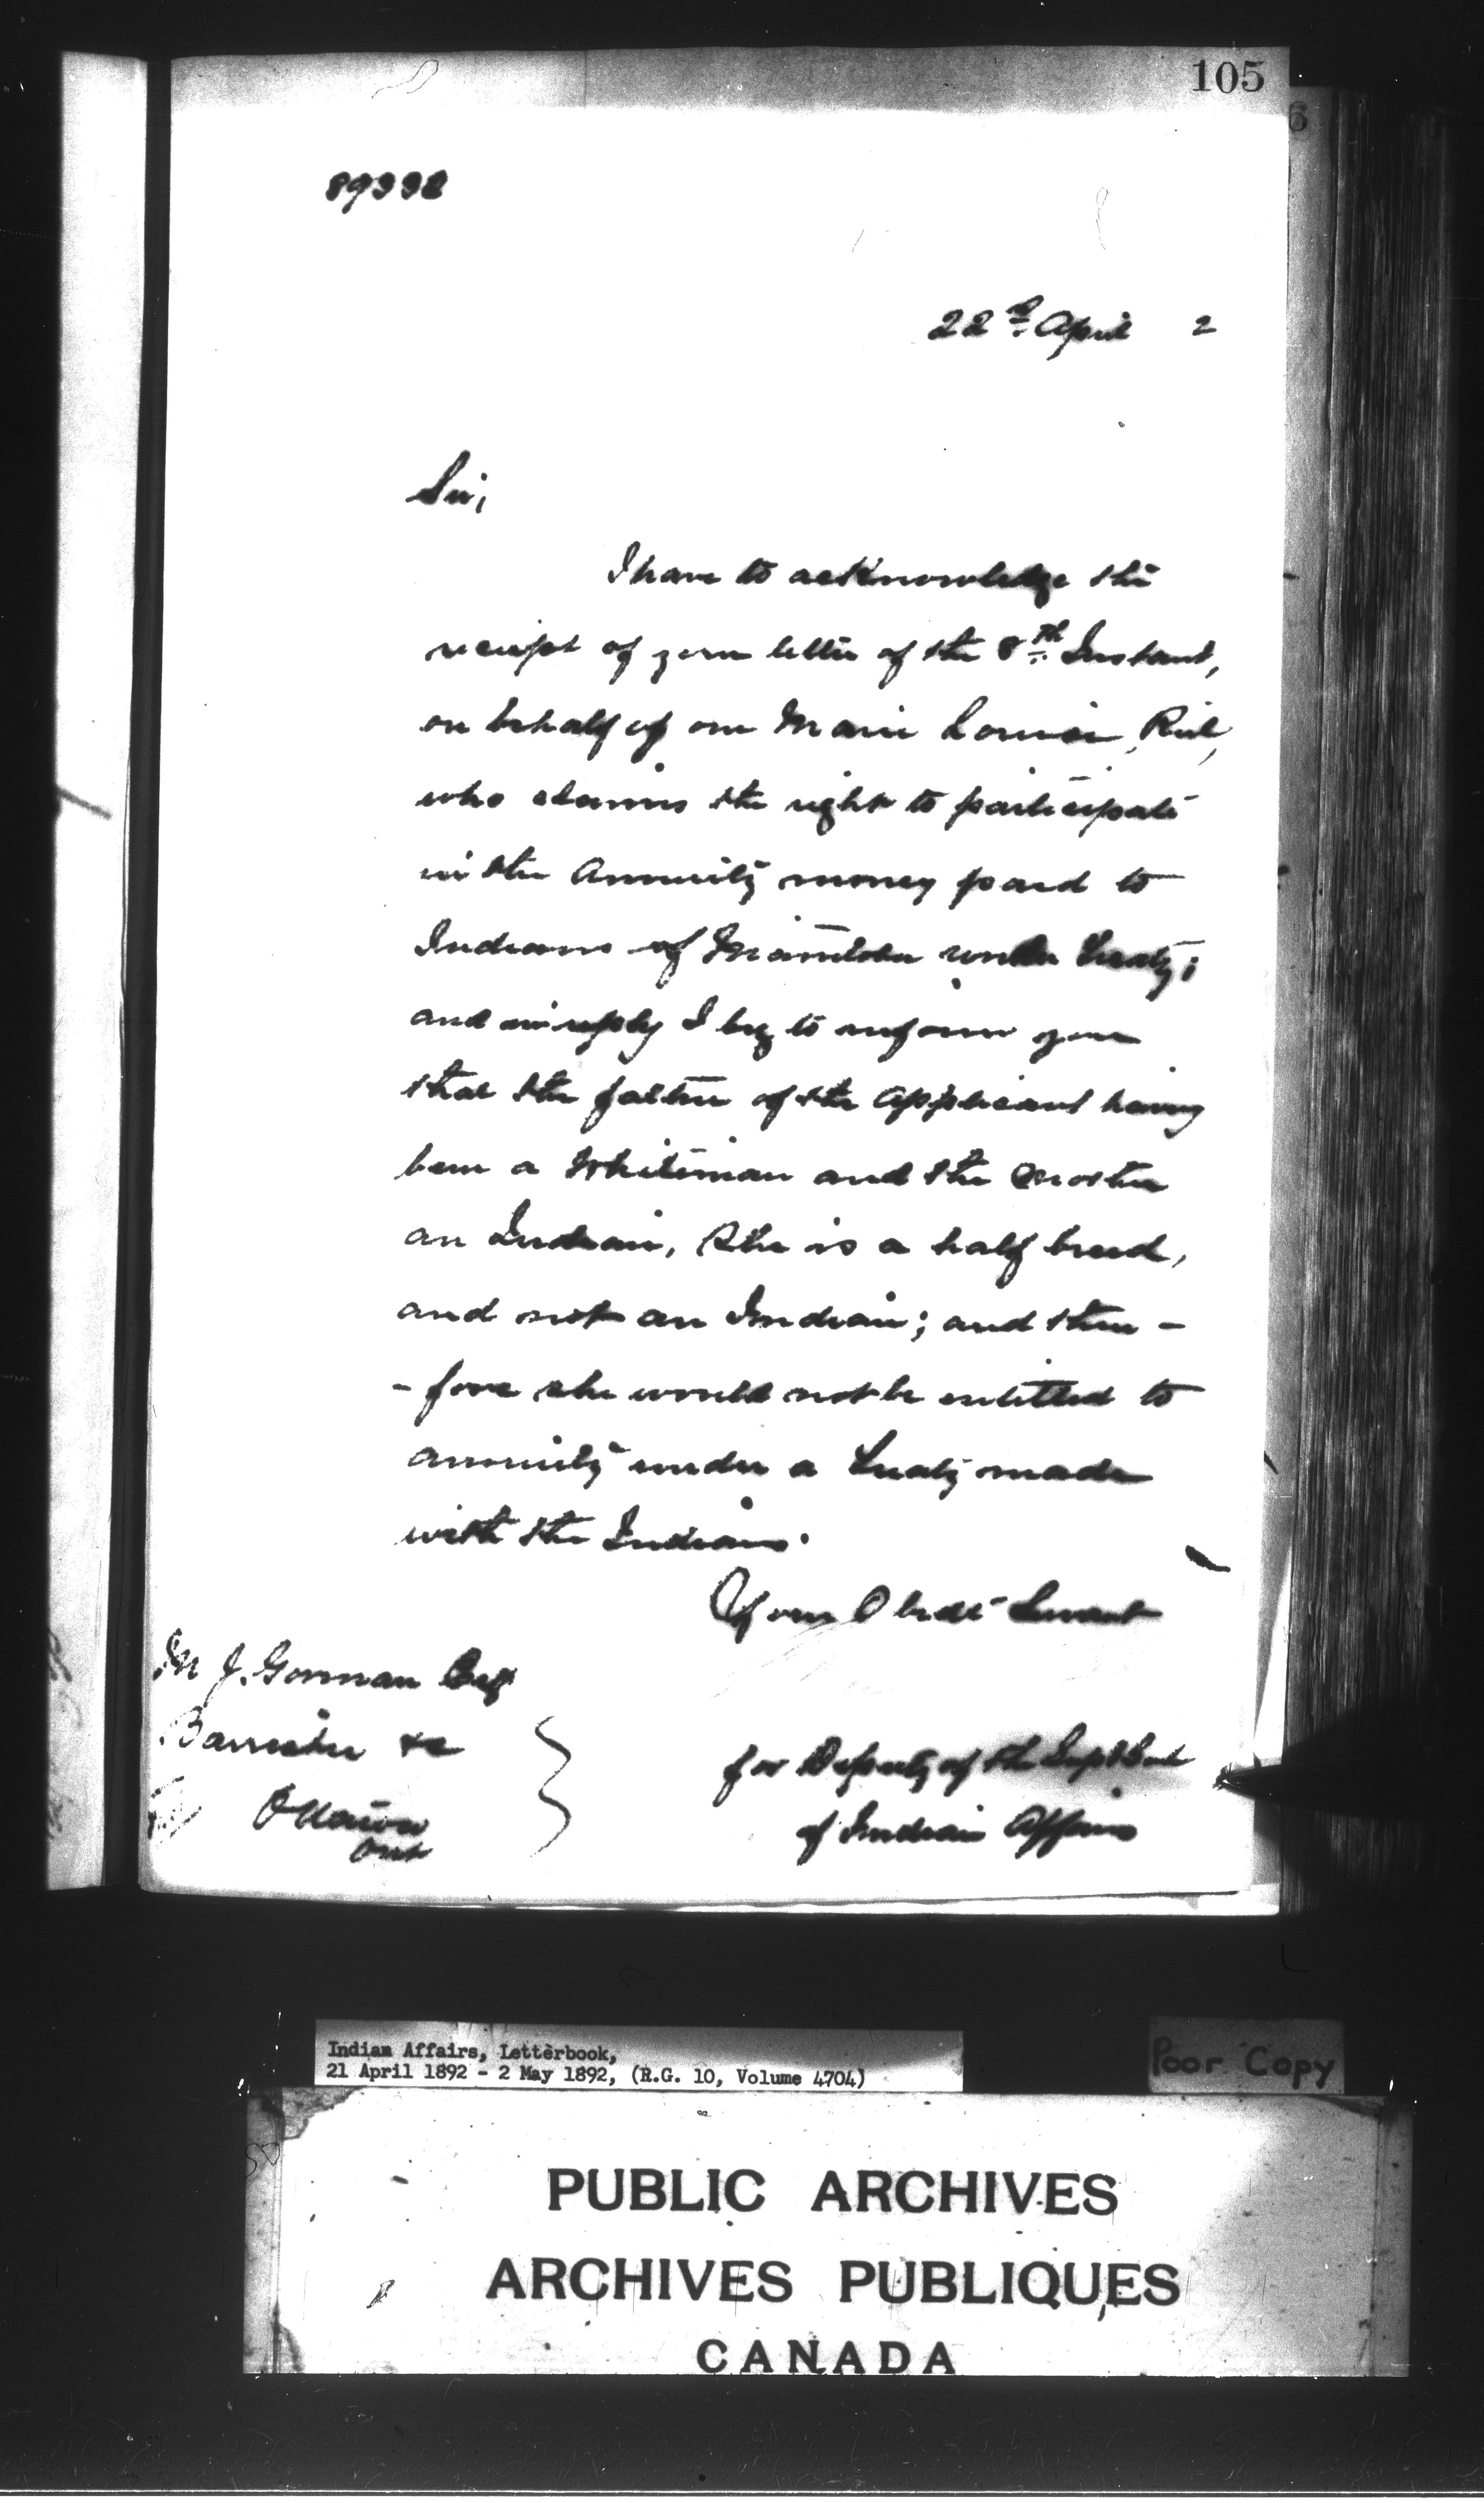 105
6
89332
22nd April 2
Sir,
I have to acknowledge the
receipt of your letter of the 8th Instant,
on behalf of one Marie Louise Riel,
who claims the right to participate
in the Annuity money paid to
Indians of Manitoba under Treaty;
and in reply I beg to inform you
that the father of the applicant having
been a Whiteman and the Mother
an Indian, she is a half breed,
and not an Indian; and there -
- fore she would not be entitled to
annuity under a Treaty made
with the Indians.
Your Obedt Servant
M J. Gorman Esq
Barrister &c
Ottawa
Ont
for Deputy of the Supt Genl
of Indian Affairs
Indian Affairs, Letterbook,
21 April 1892 - 2 May 1892, (R.G. 10, Volume 4704)
Poor Copy
PUBLIC ARCHIVES
ARCHIVES PUBLIQUES
CANADA